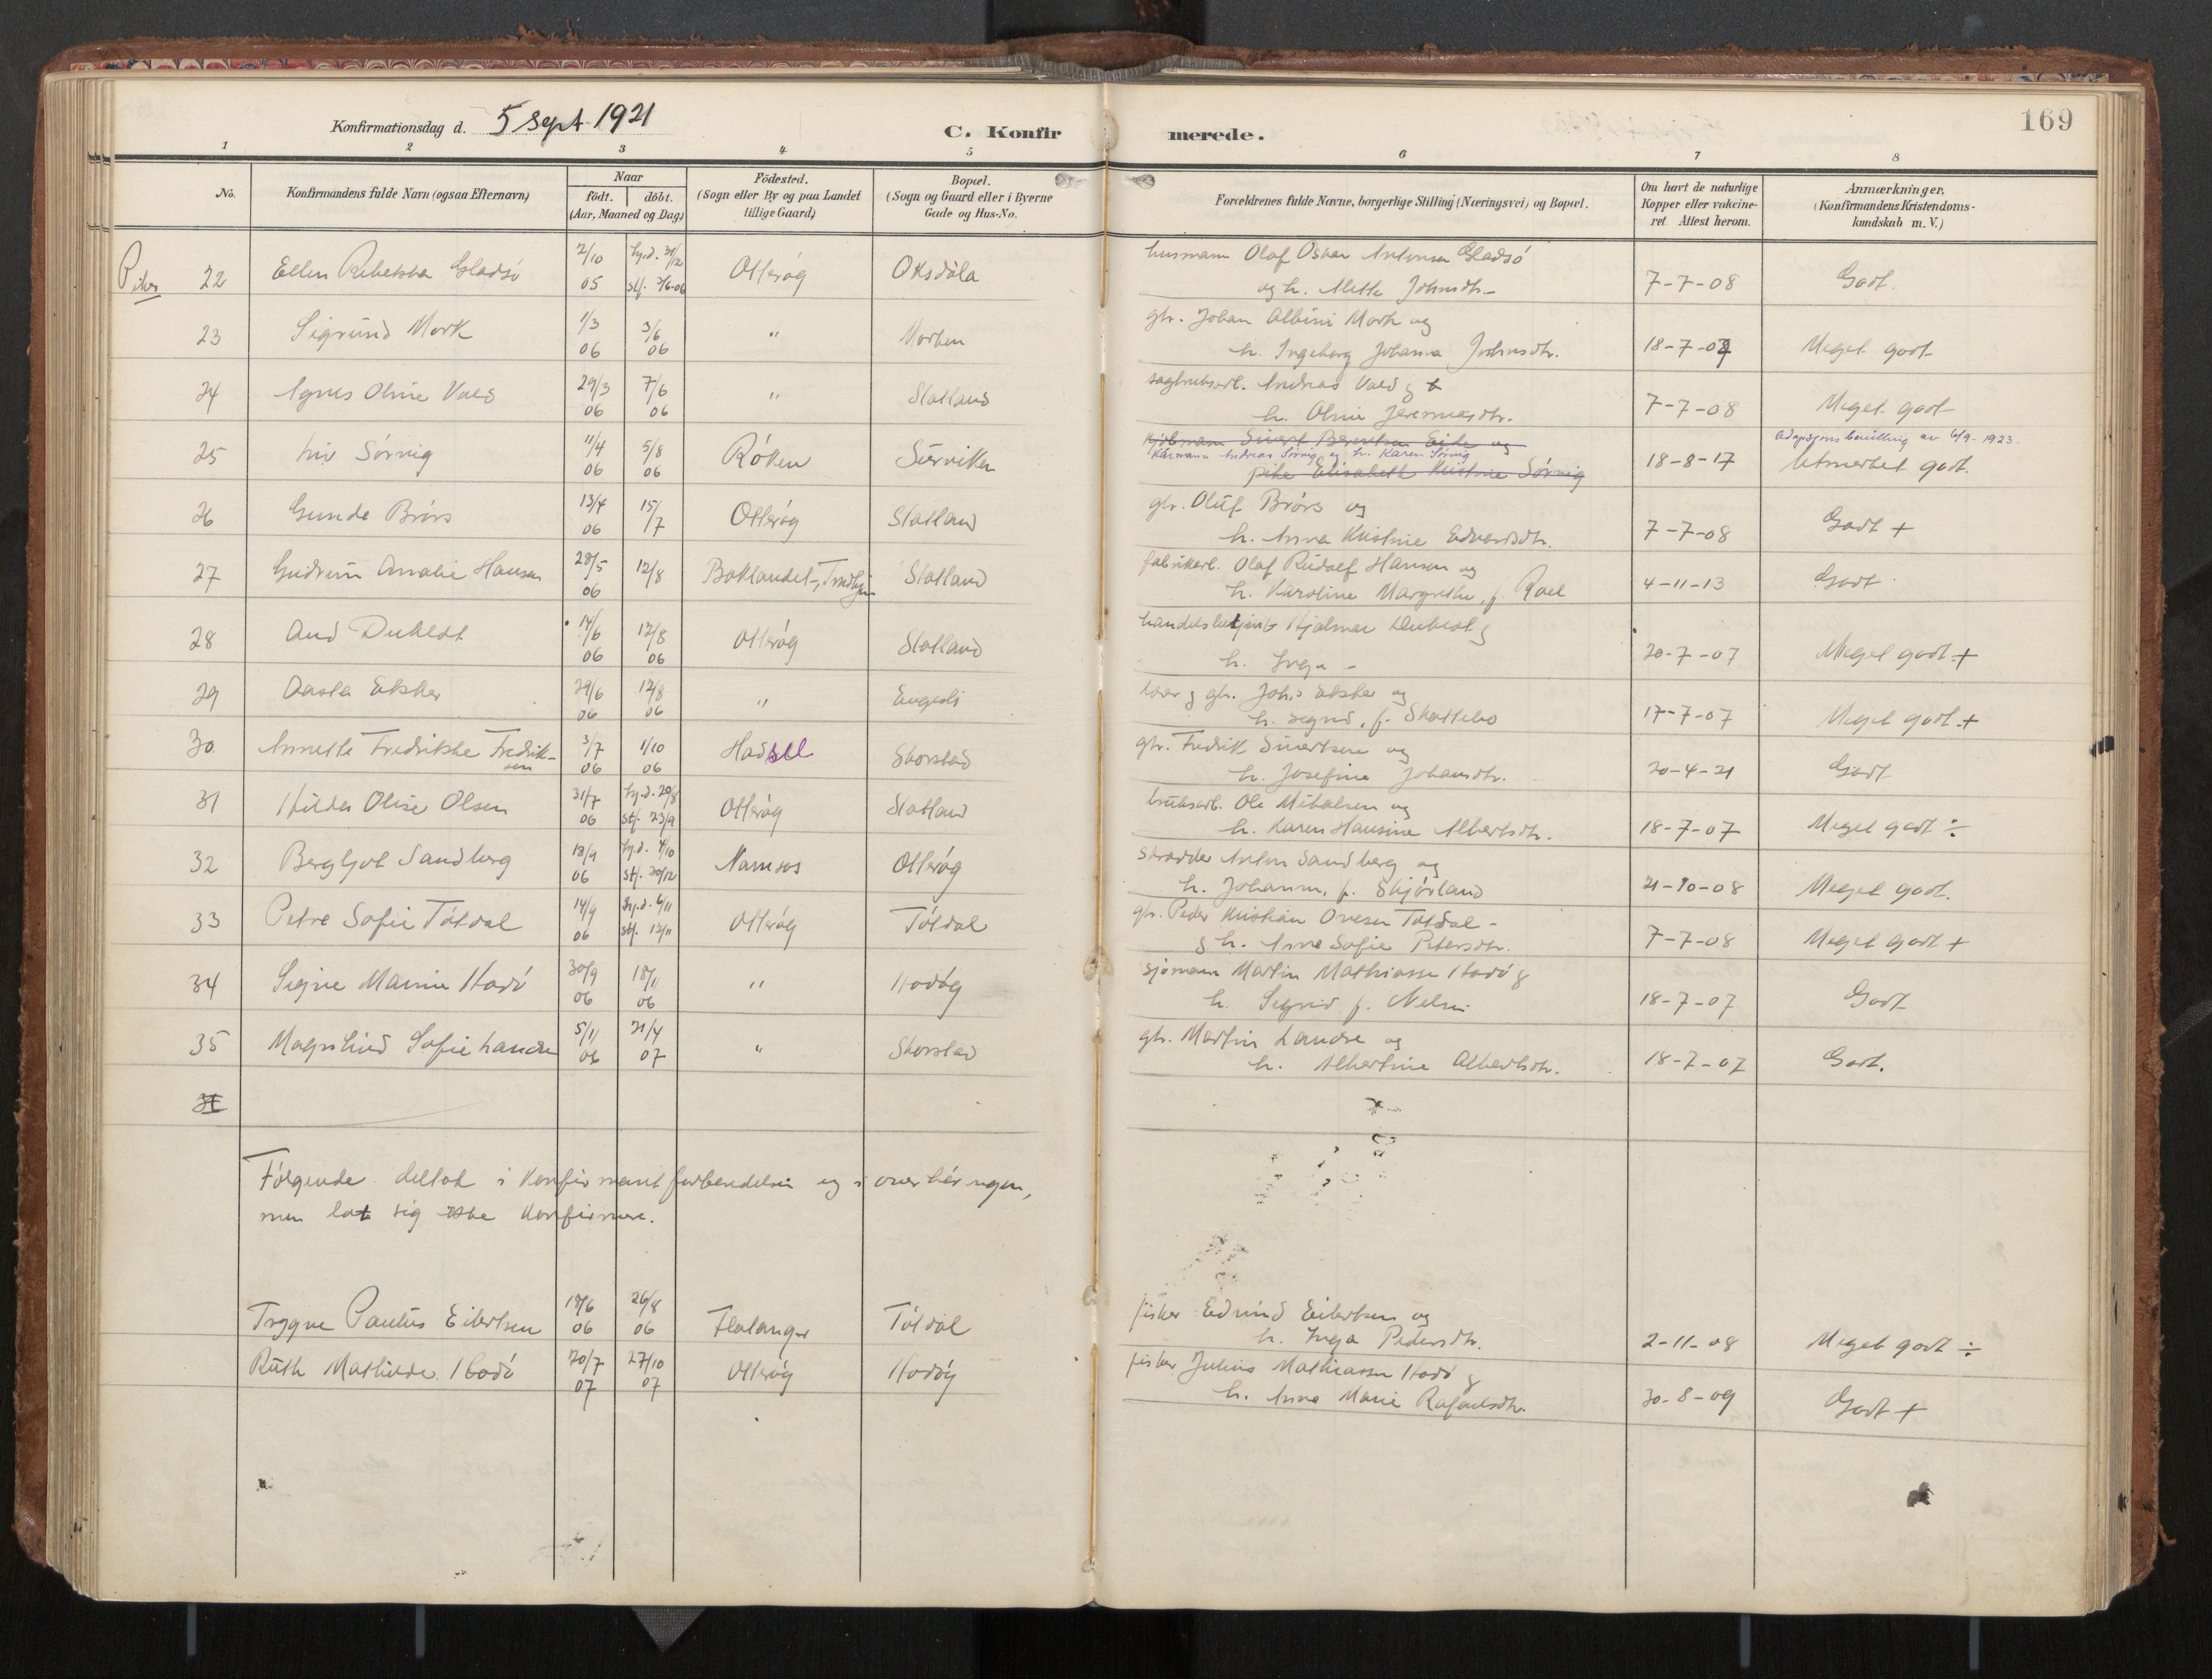 169
Konfirmationsdag d. 5 Sept 1921
C. Konfirmerede.
1 2 3 4 5 6 7 8
No.
Konfirmandens fulde Navn (ogsaa Efternavn)
Naar
födt. döbt.
(Aar, Maaned og Dag)
Födested.
(Sogn eller By og paa Landet
tillige Gaard)
Bopæl.
(Sogn og Gaard eller i Byerne
Gade og Hus-No.
Forældrenes fulde Navne, borgerlige Stilling (Næringsvei) og Bopæl.
Om havt de naturlige
Kopper eller vakcine-
ret. Attest herom.
Anmærkninger,
(Konfirmandens Kristendoms-
kundskab m. V.)
Piker 22 Ellen Rebekka Gladsö 2/10 05 hj.d. 31/12 stf. 3/6-06 Otterøy Oksdöla
husmann Olaf Oskar Antonsen Gladsö
og h. Alette Johnsdtr.
7-7-08 Godt.
23 Sigrund Mork 1/3 06 3/6 06 " Morken
gbr. Johan Albini Mork og
h. Ingeborg Johanna Johnsdtr.
18-7-07 Meget godt
24 Agnes Oline Vald 29/3 06 7/6 06 " Statland
sagbruksarb. Andreas Vald &
h. Oline Jeremiasdtr.
7-7-08 Meget godt
25 Liv Sörvig 11/4 06 5/8 06 Röken Sörviken
Sivert Berentsen Eide og
Kårmann Andreas Sörvig og h. Karen Sörvig
pike Elisabeth Kristine Sörvig
18-8-17
Adopsjons bevilling av 6/9-1923.
Utmerket godt.
26 Gunda Brörs 13/4 06 15/7 Otterøy Statland
gbr. Oluf Brörs og
h. Anna Kristine Edvardsdtr.
7-7-08 Godt +
27 Gudrun Amalie Hansen 28/5 06 12/8 Baklandet, Trondhjem Statland
fabrikarb. Olaf Rudolf Hansen og
h. Karoline Margrethe, f.
4-11-13 Godt
28 Aud Duklædt 14/6 06 12/8 06 Otterøy Statland
handelsbetjent Hjalmar &
h. Inga -
20-7-07 Meget godt +
29 Aasta Ekker 29/6 06 12/8 06 " Engesli
lærer & gbr. Johs Ekker og
h. Sigrid, f. Skattebo
17-7-07 Meget godt +
30 Annette Fredrikke Fredrik-
sen 3/7 06 1/10 06 Hadsel Skorstad
gbr. Fredrik Sivertsen og
h. Josefine Johansdtr.
20-4-21 Godt
31 Hilda Olise Olsen 31/7 06 hj.d. 20/8 stf. 23/9 Otterøy Statland
bruksarb. Ole Mikalsen og
h. Karen Hansine Albertsdtr.
18-7-07 Meget godt ÷
32 Bergljot Sandberg 18/9 06 hj.d. 4/10 stf. 30/12 Namsos Otterøy
skrædder Anton Sandberg og
h. Johanna, f. Skjörland
21-10-08 Meget godt.
33 Petra Sofie Tötdal 14/9 06 hj.d. 6/11 stf. 12/11 Otterøy Tötdal
gbr. Peder Kristian Ovesen Tötdal -
& h. Anna Sofie Petersdtr.
7-7-08 Meget godt +
34 Signe Marie Hodö 30/9 06 18/11 06 " Hodöy
sjömann Martin Mathiassen Hodö &
h. Sigrid f. Nelsen
18-7-07 Godt
35 Magnhild Sofie Landre 5/11 06 21/4 07 " Skorstad
gbr. Martin Landre og
h. Albertine Albertsdtr.
18-7-07 Godt.
Følgende deltok i konfirmantforberedelsen og i overhöringen,
men lot sig ikke konfirmere.
Trygve Paulus Eilertsen 18/6 06 26/8 06 Flatanger Tötdal
fisker Edmund Eilertsen og
h. Inga Pedersdtr.
2-11-08 Meget godt ÷
Ruth Mathilde Hodö 20/7 07 27/10 07 Otterøy Hodöy
fisker Julius Mathiassen Hodö &
h. Anna Marie Rafaelsdtr.
30-8-09 Godt +